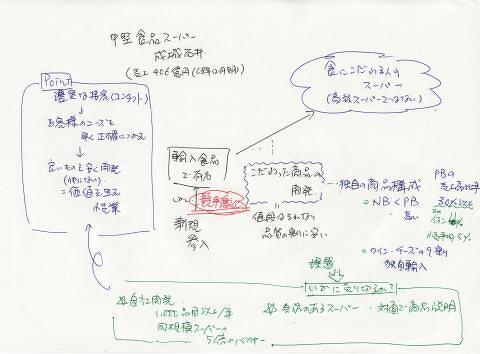 中堅食品スーパー
成城石井
Point
濃密な接客(コンタクト)
↓
お客様のニーズを
早く正確につかむ
↓
良いものを安く開発
(他にない)
=価値を生む
作業
食にこだわる人の
スーパー
(高級スーパーではない)
輸入食品
で有名
しかし
競争激化
新規
参入
こだわった商品の
開発
値段はるれない
品質の割に安い
…独自の商品構成
NB < PB
高い
PBの
売上高比率
30%以上
イオン
ワイン・チーズの9割
独自輸入
課題
いかに売り切るか?
自社開発
1,000品目以上/年
同規模スーパーの
5倍のバイヤー
会話のあるスーパー・対面で商品説明